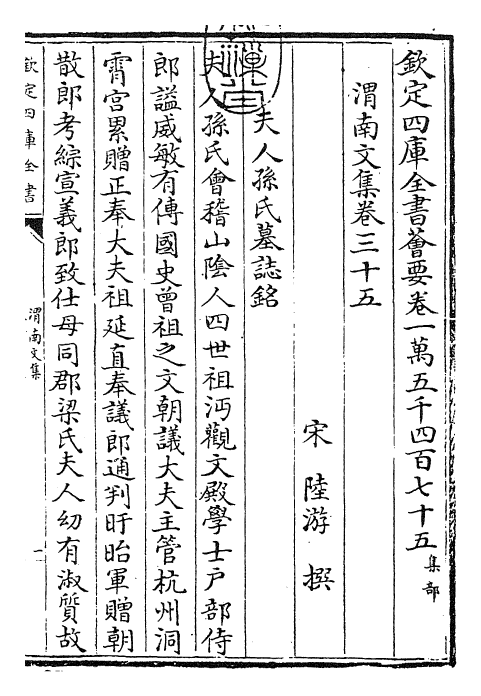 欽定四庫全書薈要卷一萬五千四百七十五 集部
渭南文集卷三十五
宋 陸游 撰
夫人孫氏墓誌銘
夫人孫氏會稽山陰人四世祖沔觀文殿學士户部侍
郎謚威敏有傳國史曾祖之文朝議大夫主管杭州洞
霄宫累贈正奉大夫祖延直奉議郎通判盱眙軍贈朝
散郎考綜宣義郎致仕母同郡梁氏夫人幼有淑質故
欽定四庫全書
渭南文集
一